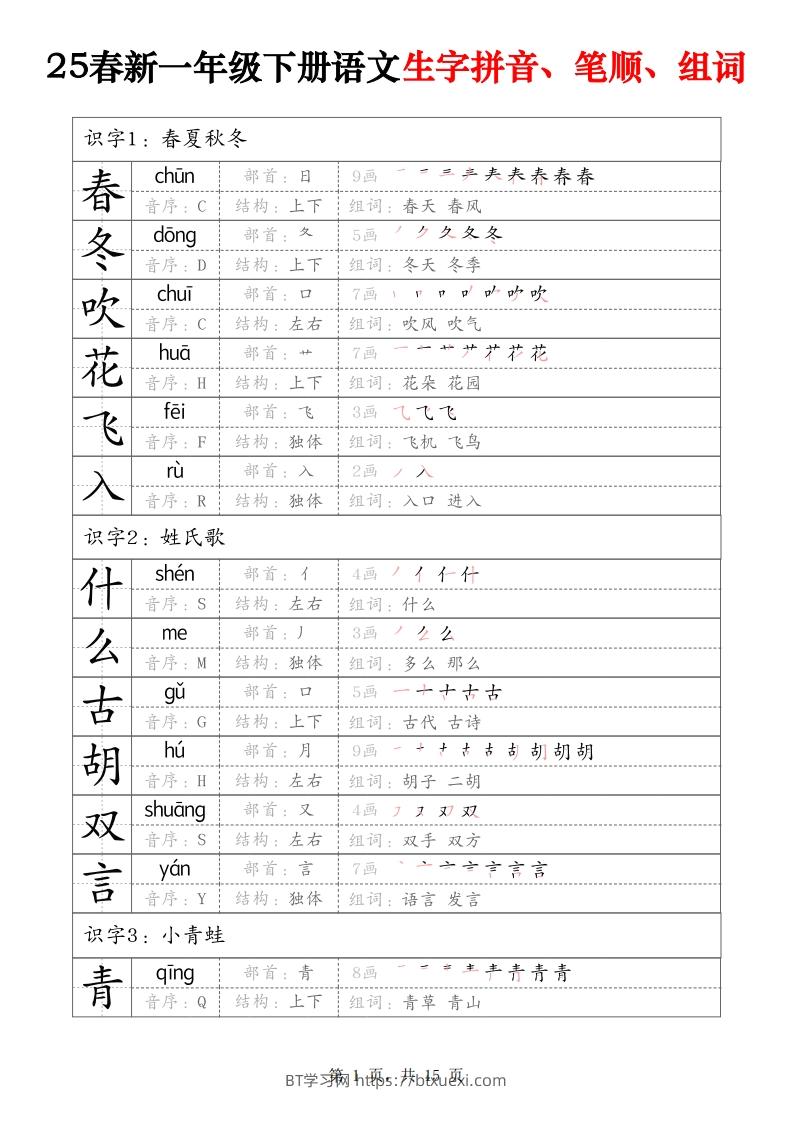 25春新一年级下册语文生字拼音、笔顺、组词
识字1：春夏秋冬
春 chūn 部首：日 9画
音序：C 结构：上下 组词：春天 春风
冬 dōng 部首：夂 5画
音序：D 结构：上下 组词：冬天 冬季
吹 chuī 部首：口 7画
音序：C 结构：左右 组词：吹风 吹气
花 huā 部首：艹 7画
音序：H 结构：上下 组词：花朵 花园
飞 fēi 部首：飞 3画
音序：F 结构：独体 组词：飞机 飞鸟
入 rù 部首：入 2画
音序：R 结构：独体 组词：入口 进入
识字2：姓氏歌
什 shén 部首：亻 4画
音序：S 结构：左右 组词：什么
么 me 部首：丿 3画
音序：M 结构：独体 组词：多么 那么
古 gǔ 部首：口 5画
音序：G 结构：上下 组词：古代 古诗
胡 hú 部首：月 9画
音序：H 结构：左右 组词：胡子 二胡
双 shuāng 部首：又 4画
音序：S 结构：左右 组词：双手 双方
言 yán 部首：言 7画
音序：Y 结构：独体 组词：语言 发言
识字3：小青蛙
青 qīng 部首：青 8画
音序：Q 结构：上下 组词：青草 青山
第 1 页，共 15 页
BT学习网 https://btxuexi.com